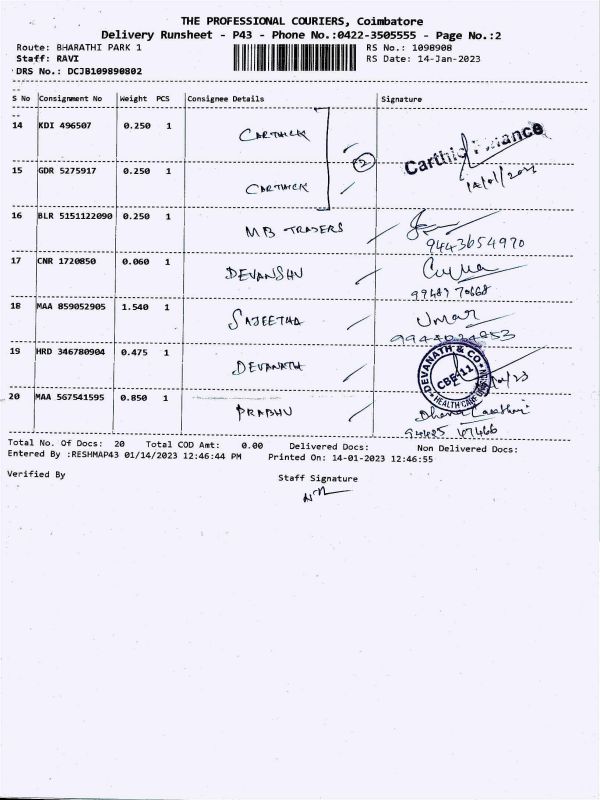 THE PROFESSIONAL COURIERS, Coimbatore
Delivery Runsheet - P43 - Phone No.:0422-3505555 - Page No.:2
Route: BHARATHI PARK 1 RS No.: 1098908
Staff: RAVI RS Date: 14-Jan-2023
DRS No.: DCJB109890802
S No Consignment No Weight PCS Consignee Details Signature
14 KDI 496507 0.250 1 CARTHICK
2 Carthic Finance
15 GDR 5275917 0.250 1 CARTHICK
16 BLR 5151122090 0.250 1 MB TRADERS 9443654970
17 CNR 1720850 0.060 1 DEVANSHU
99487 70668
18 MAA 859052905 1.540 1 SAJEETHA Umar
19 HRD 346780904 0.475 1 DEVANATH DEVANATH & CO CBE-11 HEALTH CARE
20 MAA 567541595 0.850 1 PRABHU
67466
Total No. Of Docs: 20 Total COD Amt: 0.00 Delivered Docs: Non Delivered Docs:
Entered By :RESHMAP43 01/14/2023 12:46:44 PM Printed On: 14-01-2023 12:46:55
Verified By Staff Signature